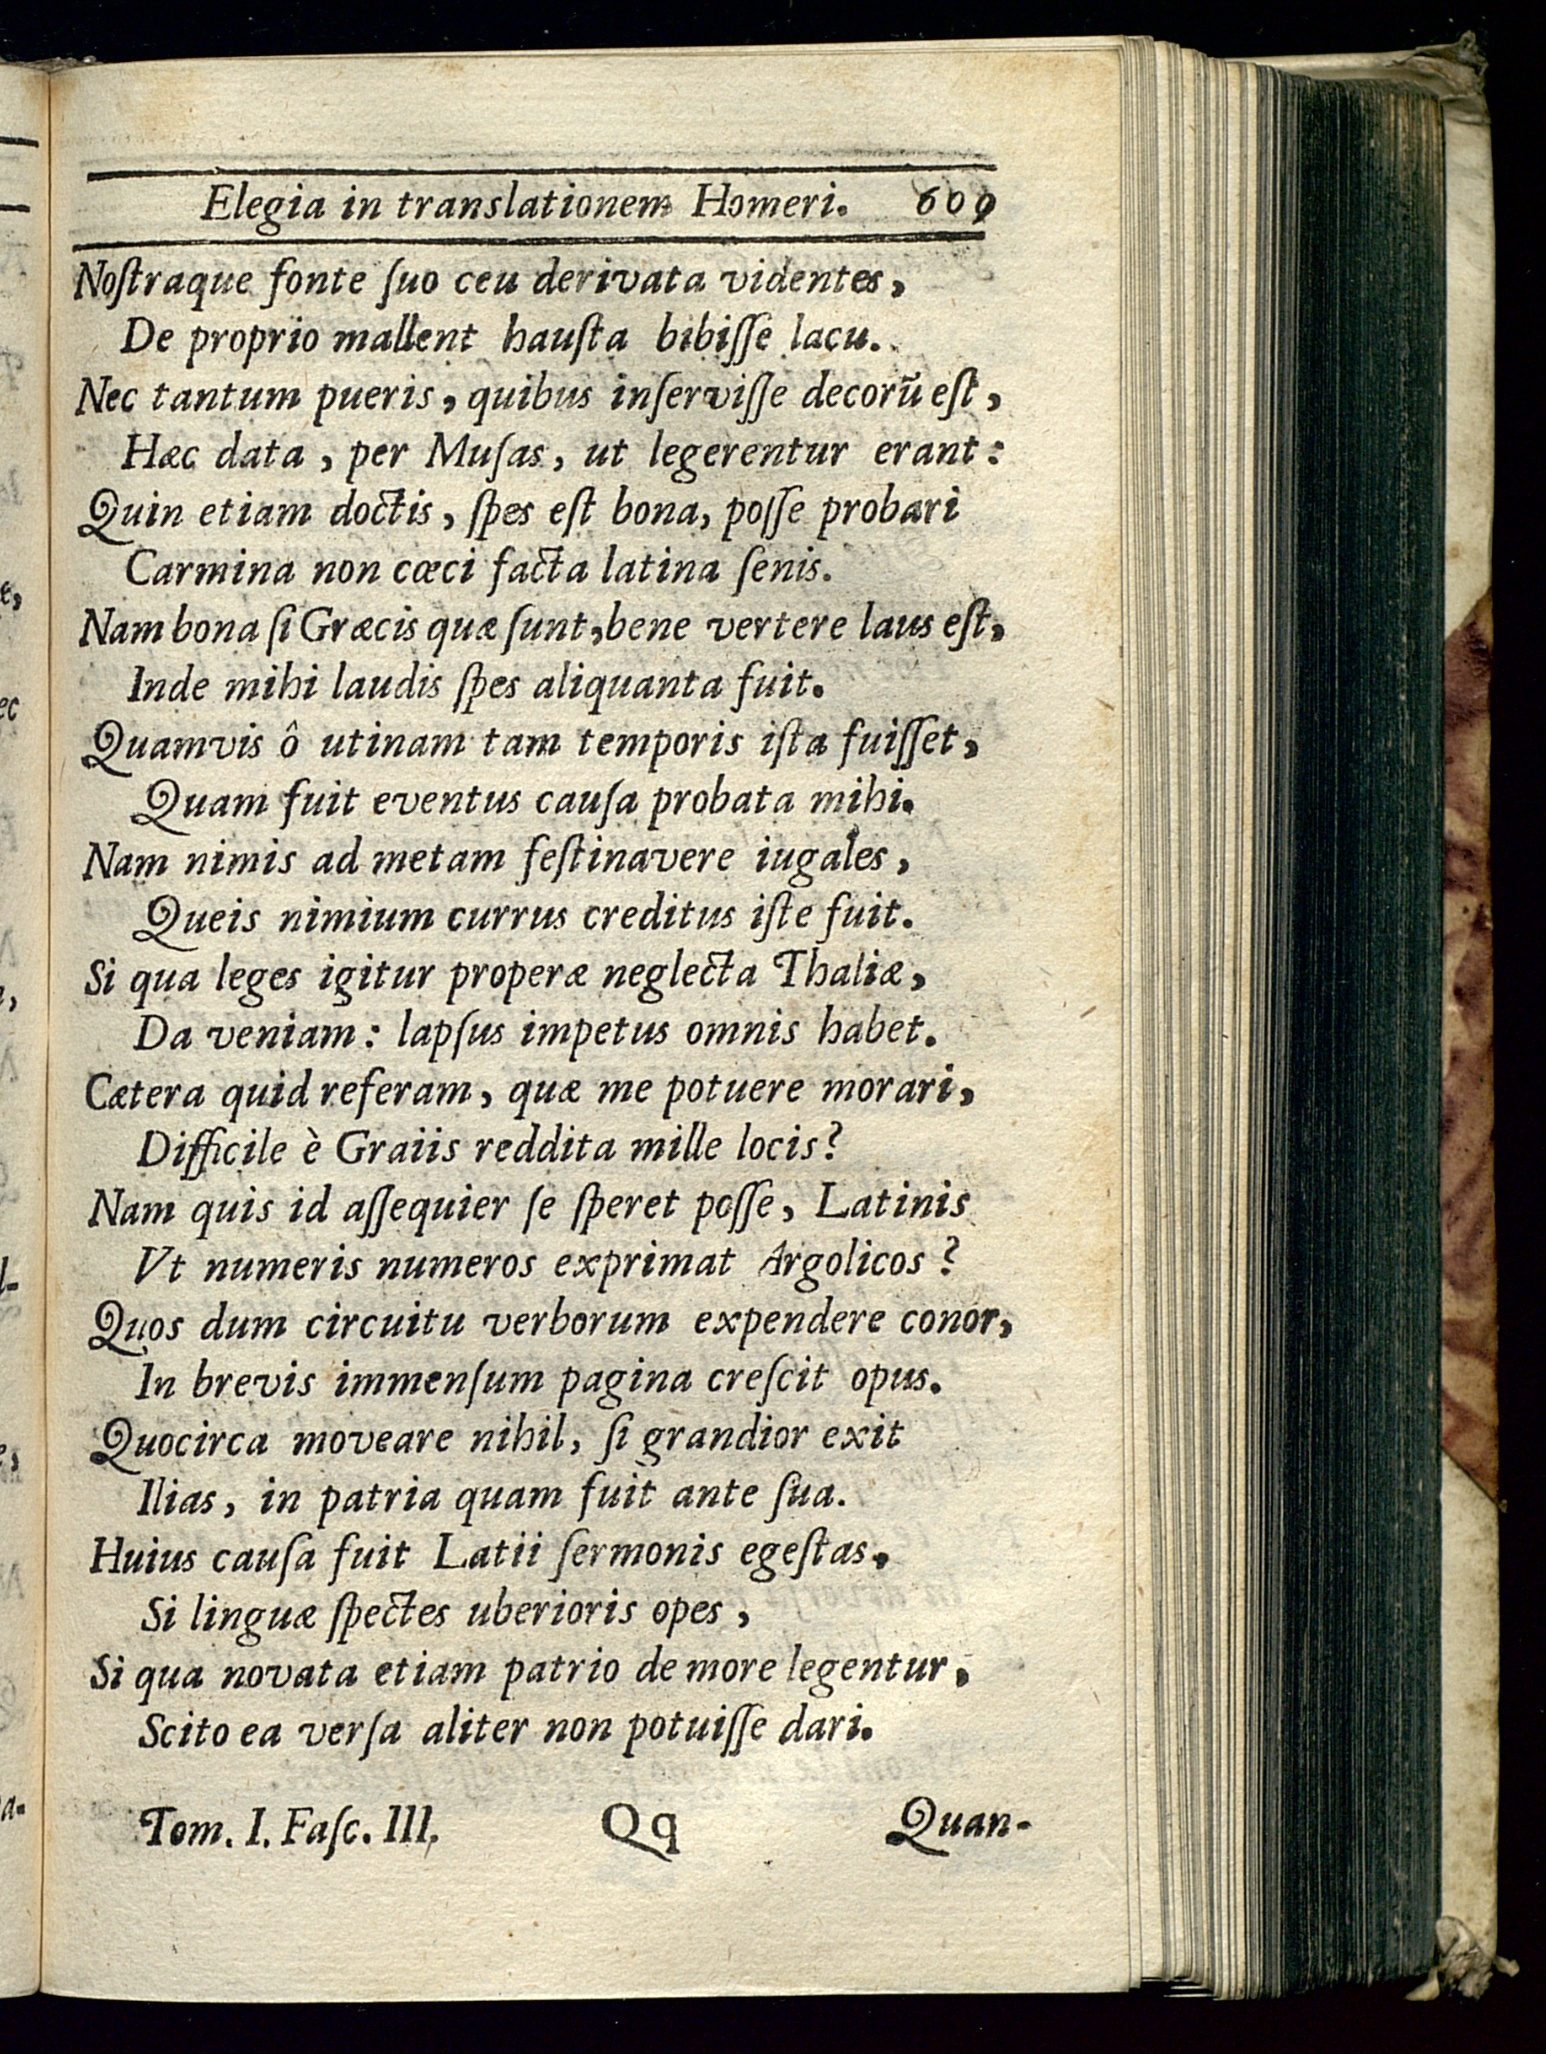 Elegia in translationem Homeri. 609
Noſtraque fonte ſuo ceu derivata videntes,
De proprio mallent hauſta bibiſſe lacu.
Nec tantum pueris, quibus inſerviſſe decorū eſt,
Hæc data, per Muſas, ut legerentur erant:
Quin etiam doctis, ſpes eſt bona, poſſe probari
Carmina non cœci facta latina ſenis.
Nam bona ſi Græcis quæ ſunt, bene vertere laus eſt,
Inde mihi laudis ſpes aliquanta fuit.
Quamvis ô utinam tam temporis iſta fuiſſet,
Quam fuit eventus cauſa probata mihi.
Nam nimis ad metam feſtinavere iugales,
Queis nimium currus creditus iſte fuit.
Si qua leges igitur properæ neglecta Thaliæ,
Da veniam: lapſus impetus omnis habet.
Cætera quid referam, quæ me potuere morari,
Difficile è Graiis reddita mille locis?
Nam quis id aſſequier ſe ſperet poſſe, Latinis
Vt numeris numeros exprimat Argolicos?
Quos dum circuitu verborum expendere conor,
In brevis immenſum pagina creſcit opus.
Quocirca moveare nihil, ſi grandior exit
Ilias, in patria quam fuit ante ſua.
Huius cauſa fuit Latii ſermonis egeſtas,
Si linguæ ſpectes uberioris opes,
Si qua novata etiam patrio de more legentur,
Scito ea verſa aliter non potuiſſe dari.
Tom. I. Faſc. III. Qq Quan-